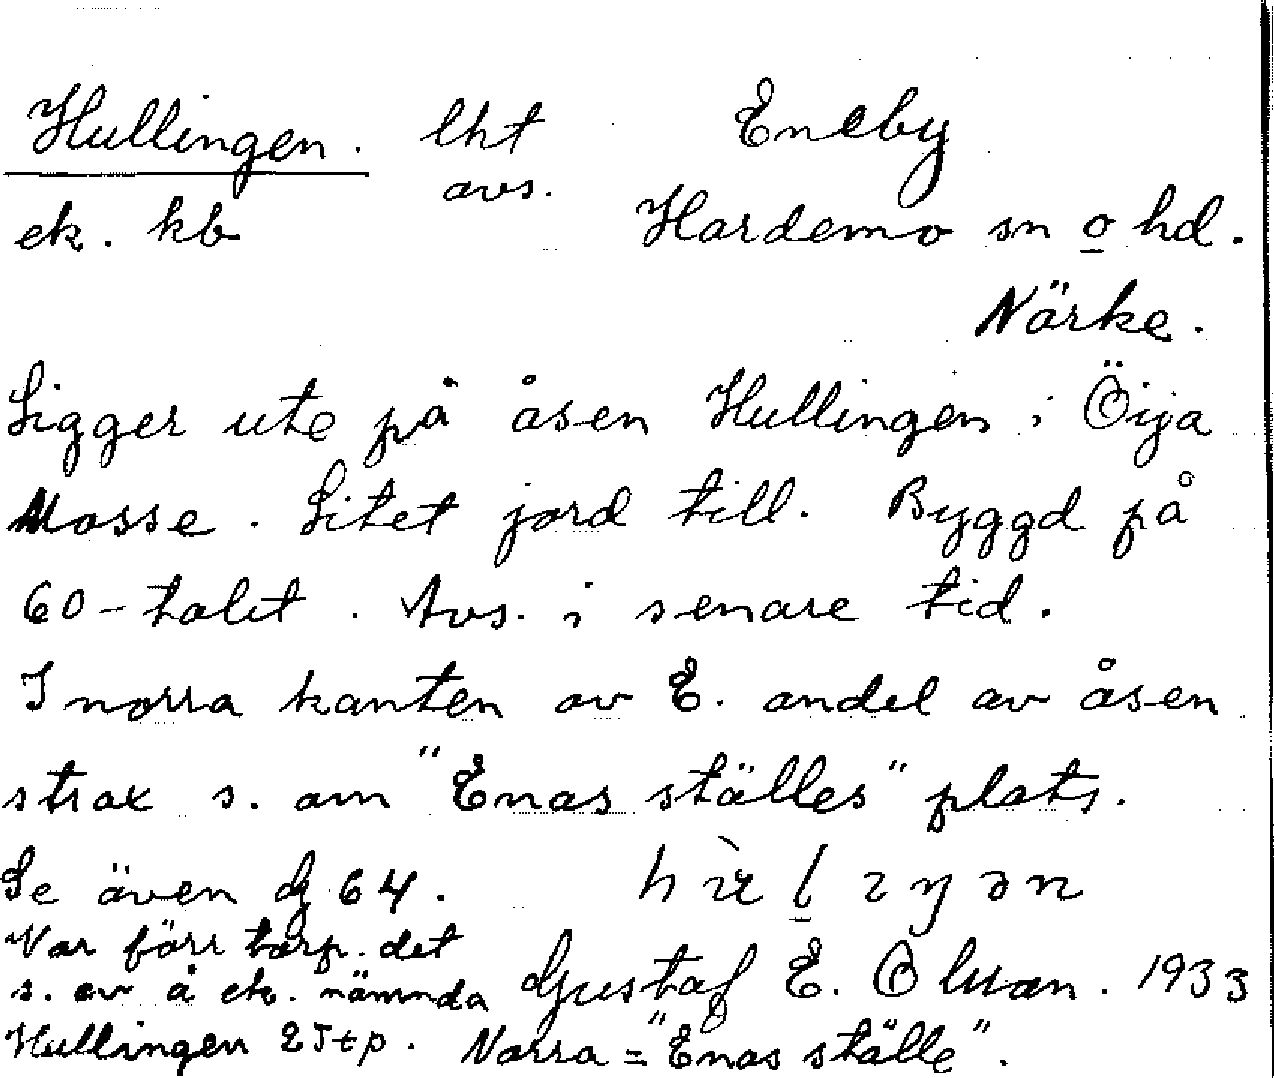 Hullingen. lht Eneby
avs.
ek. kb Hardemo sn o hd.
Närke.
Ligger ute på åsen Hullingen i Öija
Mosse. Litet jord till. Byggd på
60-talet. Avs. i senare tid.
I norra kanten av E. andel av åsen
strax s. om "Enas ställes" plats.
Se även dg 64.
Var förr torp. det
s. av å ek. nämnda Gustaf E. Olsson. 1933
Hullingen 2 Jtp. Norra = "Enas ställe".